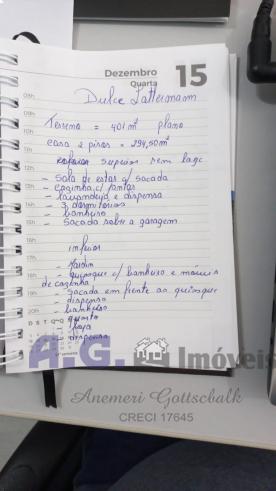 Dezembro 15
Quarta
Dulce Lattermann
Terreno = 401 m² plano
casa 2 pisos = 294,50 m²
superior sem laje
- sala de estar c/ sacada
- cozinha c/
- lavanderia e dispensa
- 3 dormitórios
- banheiro
- sacada sobre a garagem
inferior
- Jardim
- quiosque c/ banheiro e móveis
de cozinha
- sacada em frente ao quiosque
- dispensa
- banheiro
- quarto
- dispensa
A.G. Imóveis
Anemeri Gottschalk
CRECI 17645